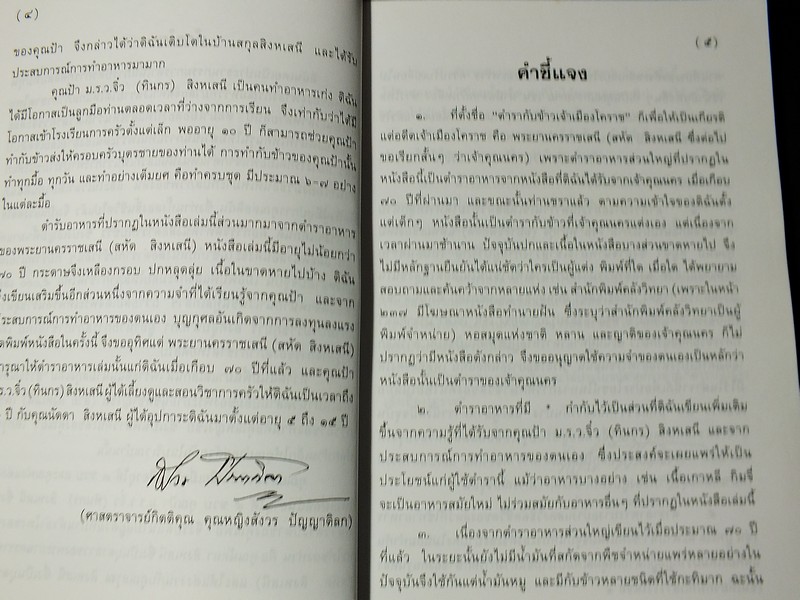 (๔)
ของคุณป้า จึงกล่าวได้ว่าดิฉันเติบโตในบ้านสกุลสิงหเสนี และได้รับ
ประสบการณ์การทำอาหารมามาก
คุณป้า ม.ร.ว.จิ๋ว (ทินกร) สิงหเสนี เป็นคนทำอาหารเก่ง ดิฉัน
ได้มีโอกาสเป็นลูกมือท่านตลอดเวลาที่ว่างจากการเรียน จึงเท่ากับว่าได้มี
โอกาสเข้าโรงเรียนการครัวตั้งแต่เล็ก พออายุ ๑๐ ปี ก็สามารถช่วยคุณป้า
ทำกับข้าวส่งให้ครอบครัวบุตรชายของท่านได้ การทำกับข้าวของคุณป้านั้น
ทำทุกมื้อ ทุกวัน และทำอย่างเต็มยศ คือทำครบชุด มีประมาณ ๖-๗ อย่าง
ในแต่ละมื้อ
ตำรับอาหารที่ปรากฏในหนังสือเล่มนี้ส่วนมากมาจากตำราอาหาร
ของพระยานครราชเสนี (สหัด สิงหเสนี) หนังสือเล่มนี้มีอายุไม่น้อยกว่า
๗๐ ปี กระดาษจึงเหลืองกรอบ ปกหลุดลุ่ย เนื้อในขาดหายไปบ้าง ดิฉัน
จึงเขียนเสริมขึ้นอีกส่วนหนึ่งจากความจำที่ได้เรียนรู้จากคุณป้า และจาก
ประสบการณ์การทำอาหารของตนเอง บุญกุศลอันเกิดจากการลงทุนลงแรง
จัดพิมพ์หนังสือในครั้งนี้ จึงขออุทิศแด่ พระยานครราชเสนี (สหัด สิงหเสนี)
กรุณาให้ตำราอาหารเล่มนั้นแก่ดิฉันเมื่อเกือบ ๗๐ ปีที่แล้ว และคุณป้า
ม.ร.ว.จิ๋ว (ทินกร) สิงหเสนี ผู้ได้เลี้ยงดูและสอนวิชาการครัวให้ดิฉันเป็นเวลาถึง
ปี กับคุณนัดดา สิงหเสนี ผู้ได้อุปการะดิฉันมาตั้งแต่อายุ ๕ ถึง ๑๕ ปี
(ศาสตราจารย์กิตติคุณ คุณหญิงสังวร ปัญญาดิลก)
(๕)
คำชี้แจง
๑. ที่ตั้งชื่อ "ตำรากับข้าวเจ้าเมืองโคราช" ก็เพื่อให้เป็นเกียรติ
แต่อดีตเจ้าเมืองโคราช คือ พระยานครราชเสนี (สหัด สิงหเสนี ซึ่งต่อไป
ขอเรียกสั้นๆ ว่าเจ้าคุณนคร) เพราะตำราอาหารส่วนใหญ่ที่ปรากฏใน
หนังสือนี้เป็นตำราอาหารจากหนังสือที่ดิฉันได้รับจากเจ้าคุณนคร เมื่อเกือบ
๗๐ ปีที่ผ่านมา และขณะนั้นท่านชราแล้ว ตามความเข้าใจของดิฉันตั้ง
แต่เด็กๆ หนังสือนั้นเป็นตำรากับข้าวที่เจ้าคุณนครแต่งเอง แต่เนื่องจาก
เวลาผ่านมาช้านาน ปัจจุบันปกและเนื้อในหนังสือบางส่วนขาดหายไป จึง
ไม่มีหลักฐานยืนยันได้แน่ชัดว่าใครเป็นผู้แต่ง พิมพ์ที่ใด เมื่อใด ได้พยายาม
สอบถามและค้นคว้าจากหลายแห่ง เช่น สำนักพิมพ์คลังวิทยา (เพราะในหน้า
๒๓๗ มีโฆษณาหนังสือทำนายฝัน ซึ่งระบุว่าสำนักพิมพ์คลังวิทยาเป็นผู้
พิมพ์จำหน่าย) หอสมุดแห่งชาติ หลาน และญาติของเจ้าคุณนคร ก็ไม่
ปรากฏว่ามีหนังสือดังกล่าว จึงขออนุญาตใช้ความจำของตนเองเป็นหลักว่า
หนังสือนั้นเป็นตำราของเจ้าคุณนคร
๒. ตำราอาหารที่มี * กำกับไว้เป็นส่วนที่ดิฉันเขียนเพิ่มเติม
ขึ้นจากความรู้ที่ได้รับจากคุณป้า ม.ร.ว.จิ๋ว (ทินกร) สิงหเสนี และจาก
ประสบการณ์การทำอาหารของตนเอง ซึ่งประสงค์จะเผยแพร่ให้เป็น
ประโยชน์แก่ผู้ใช้ตำรานี้ แม้ว่าอาหารบางอย่าง เช่น เนื้อเกาหลี กิมจี
จะเป็นอาหารสมัยใหม่ ไม่ร่วมสมัยกับอาหารอื่นๆ ที่ปรากฏในหนังสือเล่มนี้
๓. เนื่องจากตำราอาหารส่วนใหญ่เขียนไว้เมื่อประมาณ ๗๐ ปี
ที่แล้ว ในระยะนั้นยังไม่มีน้ำมันที่สกัดจากพืชจำหน่ายแพร่หลายอย่างใน
ปัจจุบันจึงใช้กันแต่น้ำมันหมู และมีกับข้าวหลายชนิดที่ใช้กะทิมาก ฉะนั้น